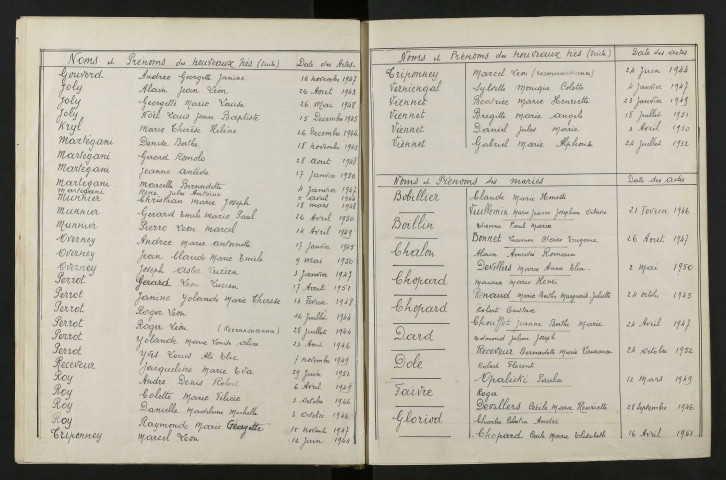 Noms et Prénoms des nouveaux nés (suite) Date des Actes.
Gouverd Andrée Georgette Janine 16 novembre 1947
Joly Alain Jean Léon 26 Aout 1943
Joly Georgette Marie Louise 26 Mai 1948
Joly Noël Louis Jean Baptiste 15 Decembre 1945
Kryl Marie Cherèse Hélène 26 Decembre 1944
Martegani Denise Berthe 18 novembre 1945
Martegani Gerard Romolo 28 aout 1948
Martegani Jeanne 17 Janvier 1950
Martegani Marcelle Bernadette 4 Janvier 1947
Martegani René Jules Antoine avril 1944
Munnier Christian Marie Joseph 18 mars 1948
Munnier Gerard Emile Marie Paul 26 Avril 1950
Munnier Pierre Léon Marcel 14 Avril 1949
Overney Andrée Marie Antoinette 17 Janvier 1945
Overney Jean Claude Marie Emile 9 mai 1950
Overney Joseph Lucien 3 Janvier 1947
Perrot Gérard Léon Lucien 17 Aout 1951
Perrot Janine Yolande Marie Cherese 14 Fevrier 1948
Perrot Roger Léon 16 Juillet 1944
Perrot Roger Léon (Reconnaissance) 28 Juillet 1944
Perrot Yolande Marie Louise Aline 23 Aout 1946
Perrot Yves Louis Elie 7 novembre 1949
Receveur Jacqueline Marie Eva 29 Juin 1952
Roy André Denis Robert 6 Avril 1949
Roy Colette Marie Félicie 3 octobre 1946
Roy Danielle Madeleine Michelle 3 octobre 1946
Roy Raymonde Marie Georgette 15 novembre 1947
Triponney Marcel Léon 12 Juin 1944
Noms et Prénoms des nouveaux nés (suite) Date des actes
Triponney Marcel Léon (reconnaissance) 24 Juin 1944
Verniengal Sylvette Monique Colette 4 Janvier 1947
Viennet Béatrice Marie Henriette 23 Janvier 1949
Viennet Brigitte Marie Angèle 18 Juillet 1951
Viennet Daniel Jules Marie 2 Avril 1950
Viennet Gabriel Marie Alphonse 24 Juillet 1952
Noms et Prénoms des mariés Date des actes
Bobillier Claude Marie
Vuillemin Marie Jeanne Joséphine 21 Fevrier 1946
Boillin Etienne Paul Marie
Bonnet Lucienne Eugenie 26 Aout 1947
Chalon Alain Romain
Devillers Marie Anna Elia 2 Mai 1950
Chopard Maurice Marie Henri
Renaud Marie Berthe Marguerite Juliette 24 octobre 1945
Chopard Robert Gustave
Chouffot Jeanne Berthe Marie 24 Avril 1947
Dard Edmond Julien Joseph
Receveur Bernadette Marie 24 octobre 1952
Dole Robert Florent
Opalicki Paula 12 Mars 1949
Faivre Roger
Devillers Cécile Marie Henriette 28 Septembre 1946
Gloriod Charles Célestin André
Chopard Marie Elisabeth 16 Avril 1951